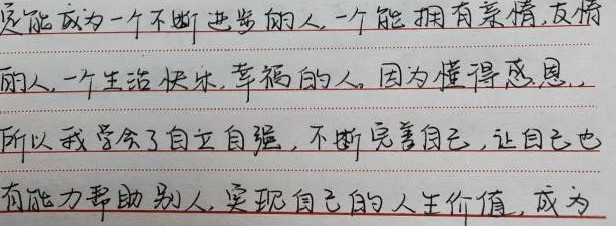 能成为一个不断进步的人,一个能拥有亲情,友情
的人,一个生活快乐,幸福的人。因为懂得感恩,,
所以我学会了自立自强,不断完善自己,让自己也
有能力帮助别人,实现自己的人生价值,成为